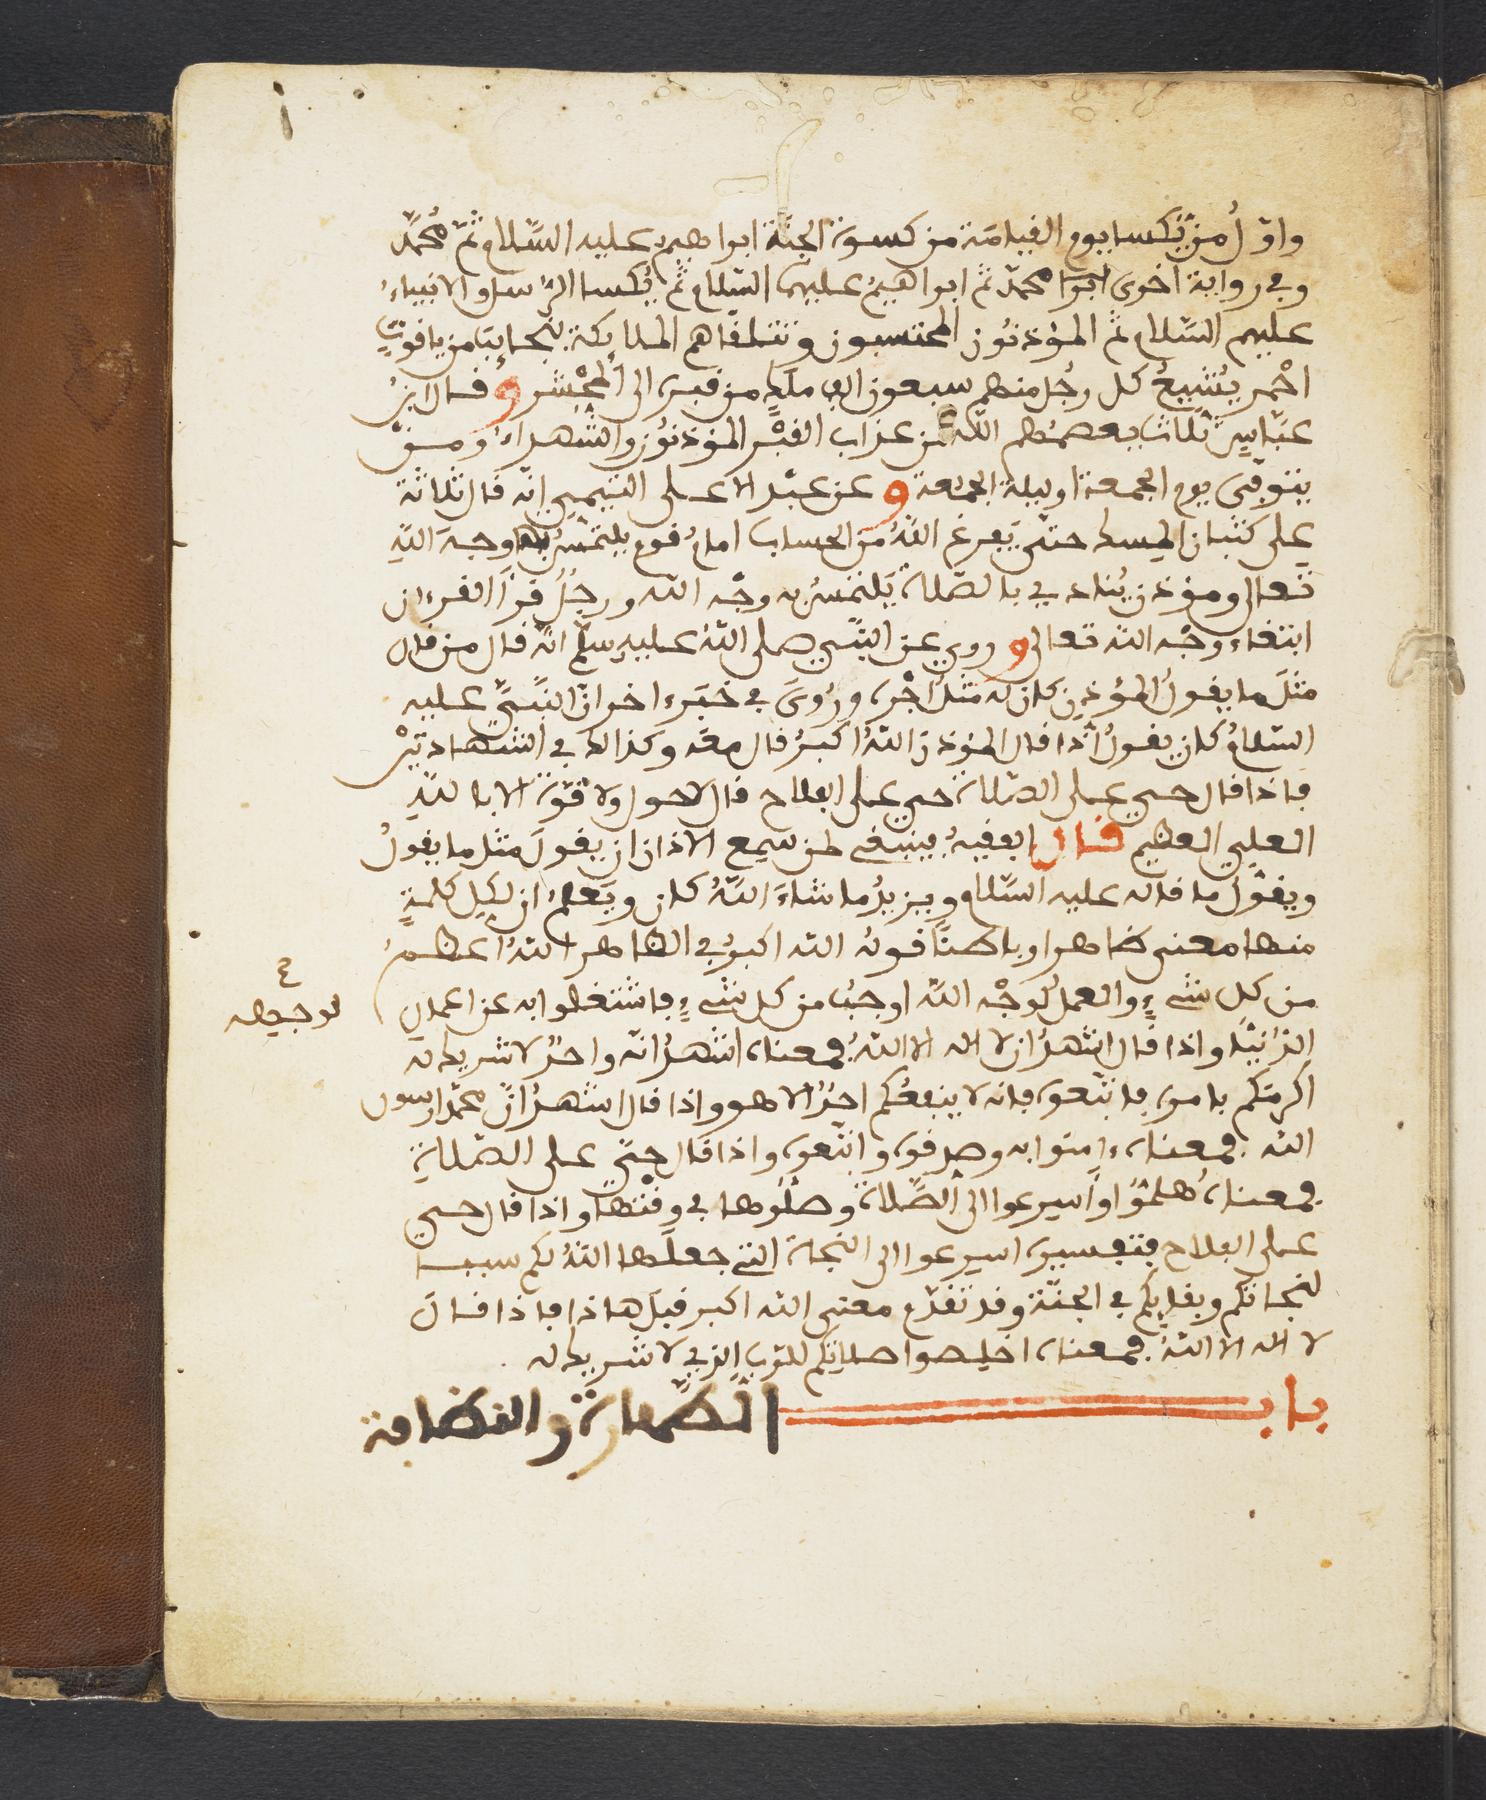 واوّلُ من يُكسا يوم القيامَة من كسوة الجنّة ابراهيم عليه السّلام ثمّ محُمّد
وفي رواية اخرى محمّد ثمّ ابراهيمُ عليهما السّلام ثم يُكسا الرّسل والانبياءُ
عليهم السّلام ثم المؤذنُون المحتسبون وتتلقّاهم الملايكة بنجايبَ من ياقوتٍ
احْمر يُشَيِّعُ كل رجُل منهم سبعون الف ملَكٍ من قبره الى المحْشر وقال ابنُ
عبّاسٍ ثلاث يعصمُهم اللّه من عذاب القبْر المؤذنُون والشّهداءُ ومنْ
يتوفّى يوم الجمعة او ليلة الجُمعة وعن عبْد الاعلى التيْميِ انّه قال ثلاثة
على كثبان المِسك حتى يَفرغ اللّهُ من الحساب امامُ قوم يلتمسُ بها وجهَ اللّهِ
تعالى ومؤذن يُنادي بالصّلاة يَلتمسُ به وجْه اللّه ورجُلُ قرَأ القرءان
ابتغاء وجْه اللّه تعالى وروي عن النّبي صلى اللّهُ عليه وسلّم انّه قال من قال
مثلَ ما يقولُ المؤذن كان له مثلُ اجْره ورُوىَ في خبَرٍ ءاخر انّ النّبيّ عليه
السّلامُ كان يقولُ اذا قال المؤذن اللّهُ اكبرُ قال معَه وكذالك في الشّهادتيْن
فاذا قال حي على الصّلاة حي على الفلاح قال لاحول ولا قوّة الا باللّهِ
العليِ العظيمِ قال الفقيهُ ينبغي لمن سَمِع الاذان ان يقولَ مثل ما يقولُ
ويقول ما قاله عليه السّلام ويزيدُ ما شاءَ اللّهُ كان ويَعلم ان لكل كلمةٍ
منها معنى ظاهرا وباطنًا قوله اللّه اكبرُ في الظاهر اللّهُ اعظمُ
من كل شيءٍ والعملُ لوَجْه اللّه اوجبُ من كل شيءٍ فاشتغلوا به عن اعمال
لوجهه
الدّنيَا واذا قال اشهدُ ان لا اله الا اللّهُ فمعناه اشهدُ انّه واحدٌ لاشريك له
اكرمَكم بامره فاتّبعوه فانه لا ينفعُكم احدٌ الا هو واذا قال اشهدُ انّ محمّدا رسول
اللّه فمعناه ءامنوا به وصدقوه واتّبعوه واذا قال حيَّ على الصّلاةِ
فمعناه هلمّوا واسرعوا الى الصّلاة وصلّوها في وقتها واذا قال حي
على الفلاح فتفسيره اسرعوا الى النجاة التي جعلَها اللّهُ لكم سببا
لنجاتكم وبقايكم في الجنّة وقد تقدّم معنى اللّه اكبر قبلَ هاذا فاذا قال
لا اله الا اللّهُ فمعناه اخلِصوا صلاتكم للرّب الذي لاشريك له
باب الطّهارة والنظافة